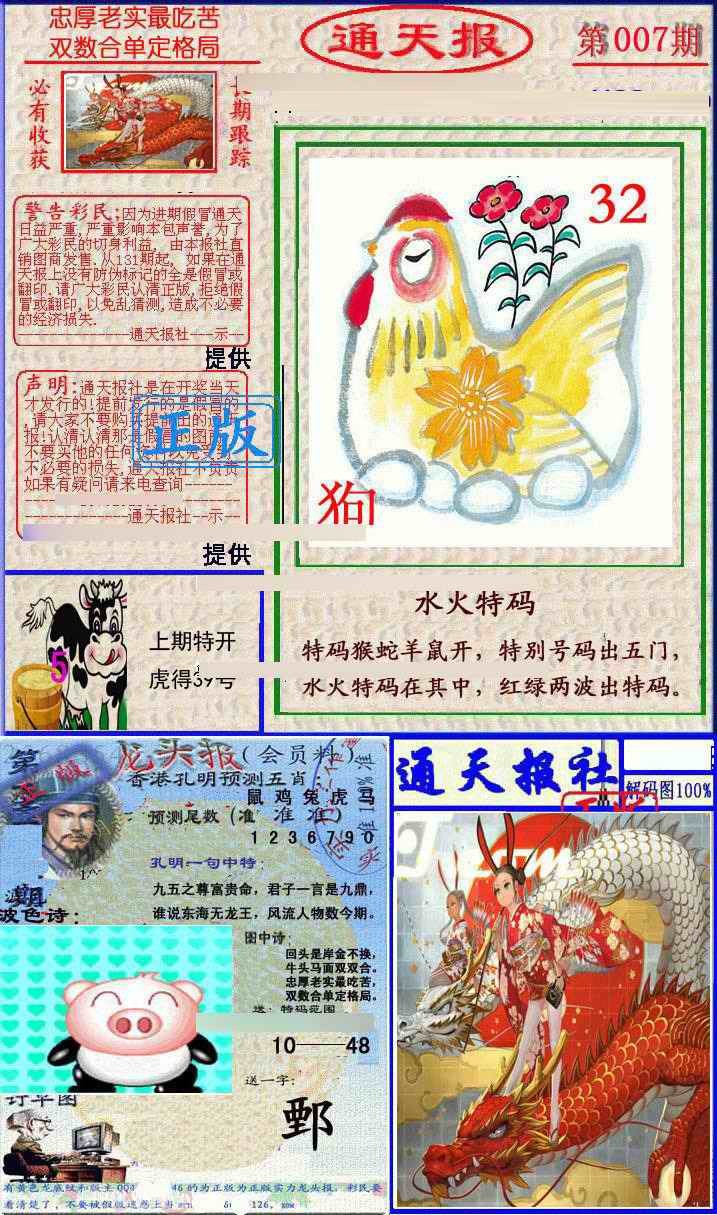 忠厚老实最吃苦
双数合单定格局
通天报
第007期
必有收获
期跟踪
警告彩民;因为进期假冒通天
日益严重,严重影响本包声誉,为了
广大彩民的切身利益, 由本报社直
销图商发售.从131期起, 如果在通
天报上没有防伪标记的全是假冒或
翻印.请广大彩民认清正版,拒绝假
冒或翻印,以免乱猜测,造成不必要
的经济损失.
-------------通天报社---示--
提供
声明:通天报社是在开奖当天
才发行的!提前发行的是假冒的
,请大家不要购
报!认清认清那
不要买他的任何
不必要的损失,通天报社不负责
如果有疑问请来电查询------
-------------通天报社--示--
提供
正版
32
狗
水火特码
特码猴蛇羊鼠开，特别号码出五门，
水火特码在其中，红绿两波出特码。
5
上期特开
虎得39号
第
龙头报(会员料)
香港孔明预测五肖
鼠 鸡 兔 虎 马
预测尾数(准 准 准)
1 2 3 6 7 9 0
孔明一句中特:
九五之尊富贵命，君子一言是九鼎，
谁说东海无龙王，风流人物数今期。
期
波色诗:
图中诗:
回头是岸金不换，
牛头马面双双合。
忠厚老实最吃苦，
双数合单定格局。
送:特码范围
10——48
送一字:
鄄
有黄色龙底纹和版主004 46的为正版为正版实力龙头报，彩民要
看清楚了，不要被假版迷惑上当
126,
通天报社
解码图100%